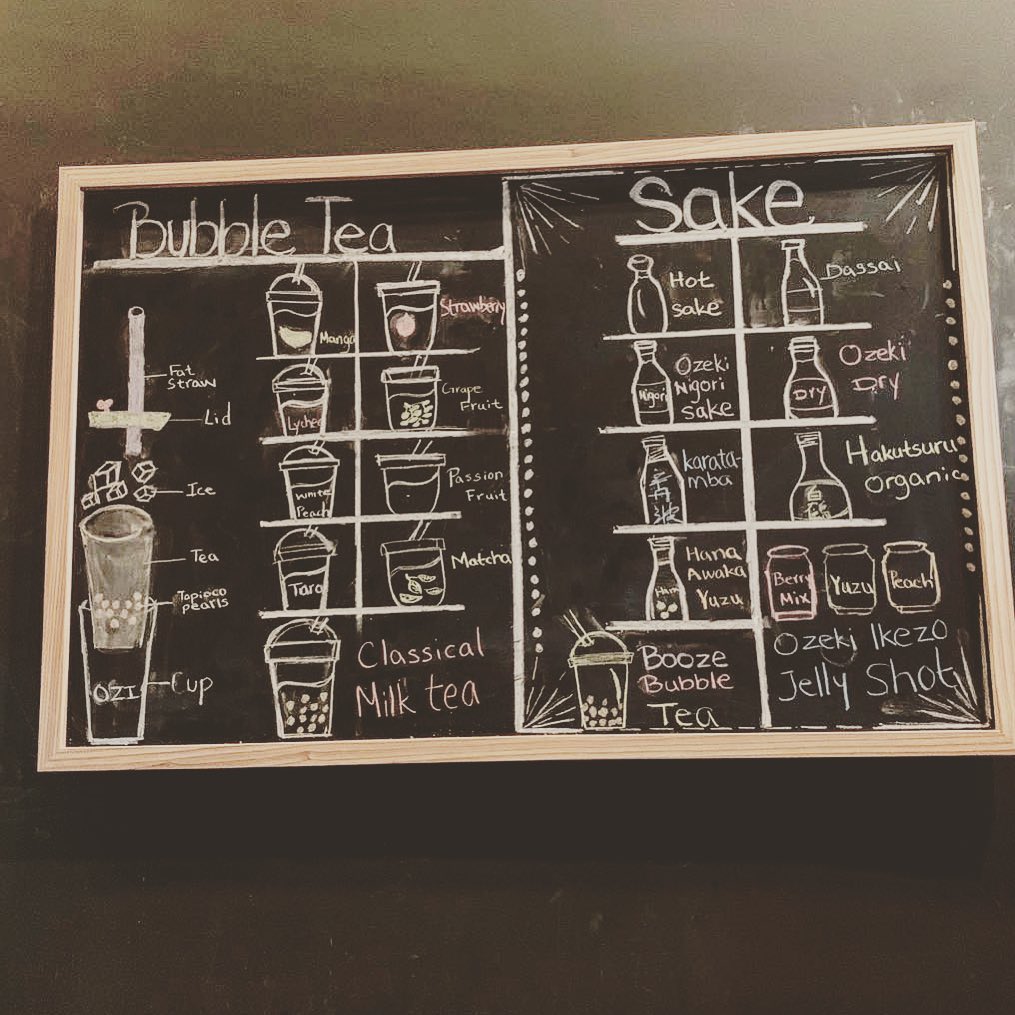 Bubble Tea
Fat
Straw
Lid
Ice
Tea
Tapioca
pearls
OZI
Cup
Mango
Strawberry
Lychee
Grape
Fruit
White
Peach
Passion
Fruit
Taro
Matcha
Classical
Milk tea
Sake
Hot
sake
Dassai
Nigori
Ozeki
Nigori
sake
DRY
Ozeki
DRY
karata-
mba
Hakutsuru
organic
Hana
Awaka
Yuzu
Berry
Mix
Yuzu
Peach
Booze
Bubble
Tea
Ozeki Ikezo
Jelly Shot